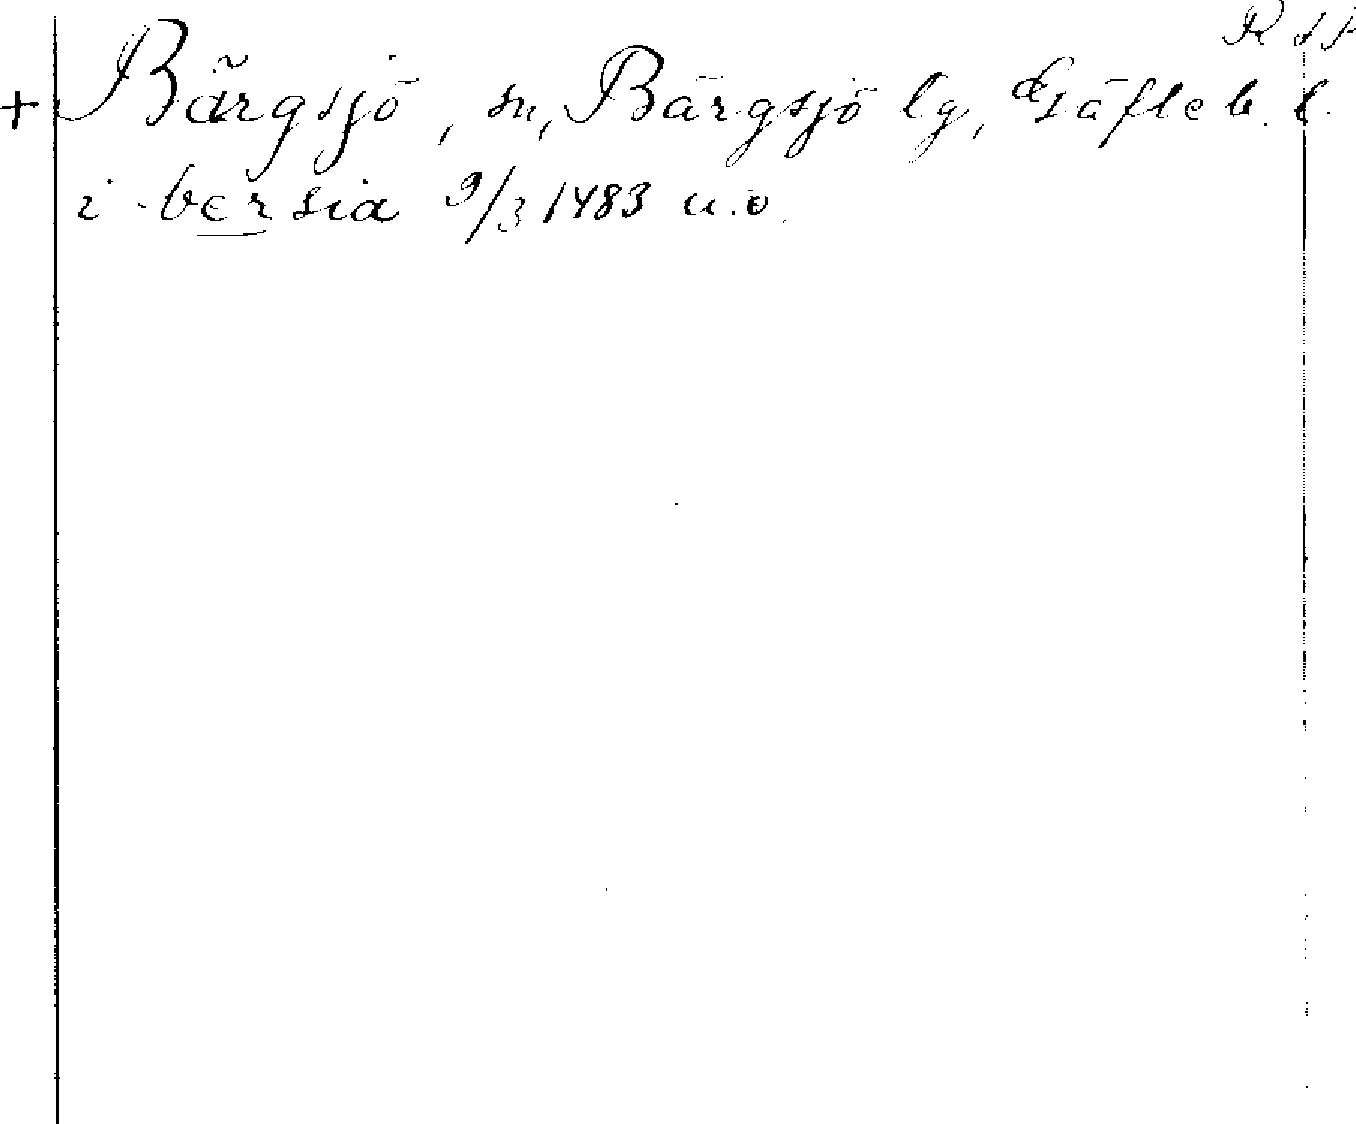 R sp
+ Bärgsjö, sn, Bärgsjö lg, Gäfleb. l.
i bersia 9/3 1483 u.o.